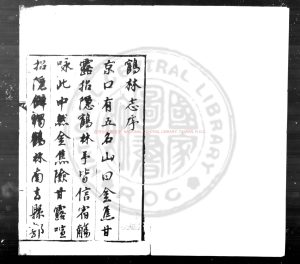 鶴林志序
京口有五名山曰金焦甘
露招隱鶴林予皆信宿觴
咏此中然金焦險甘露喧
招隱僻獨鶴林南去縣郭
CENTRAL LIBRARY